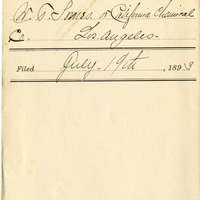 W. T. Somes. of California Chemical
Co. Los Angeles.
Filed July, 19th, 1898